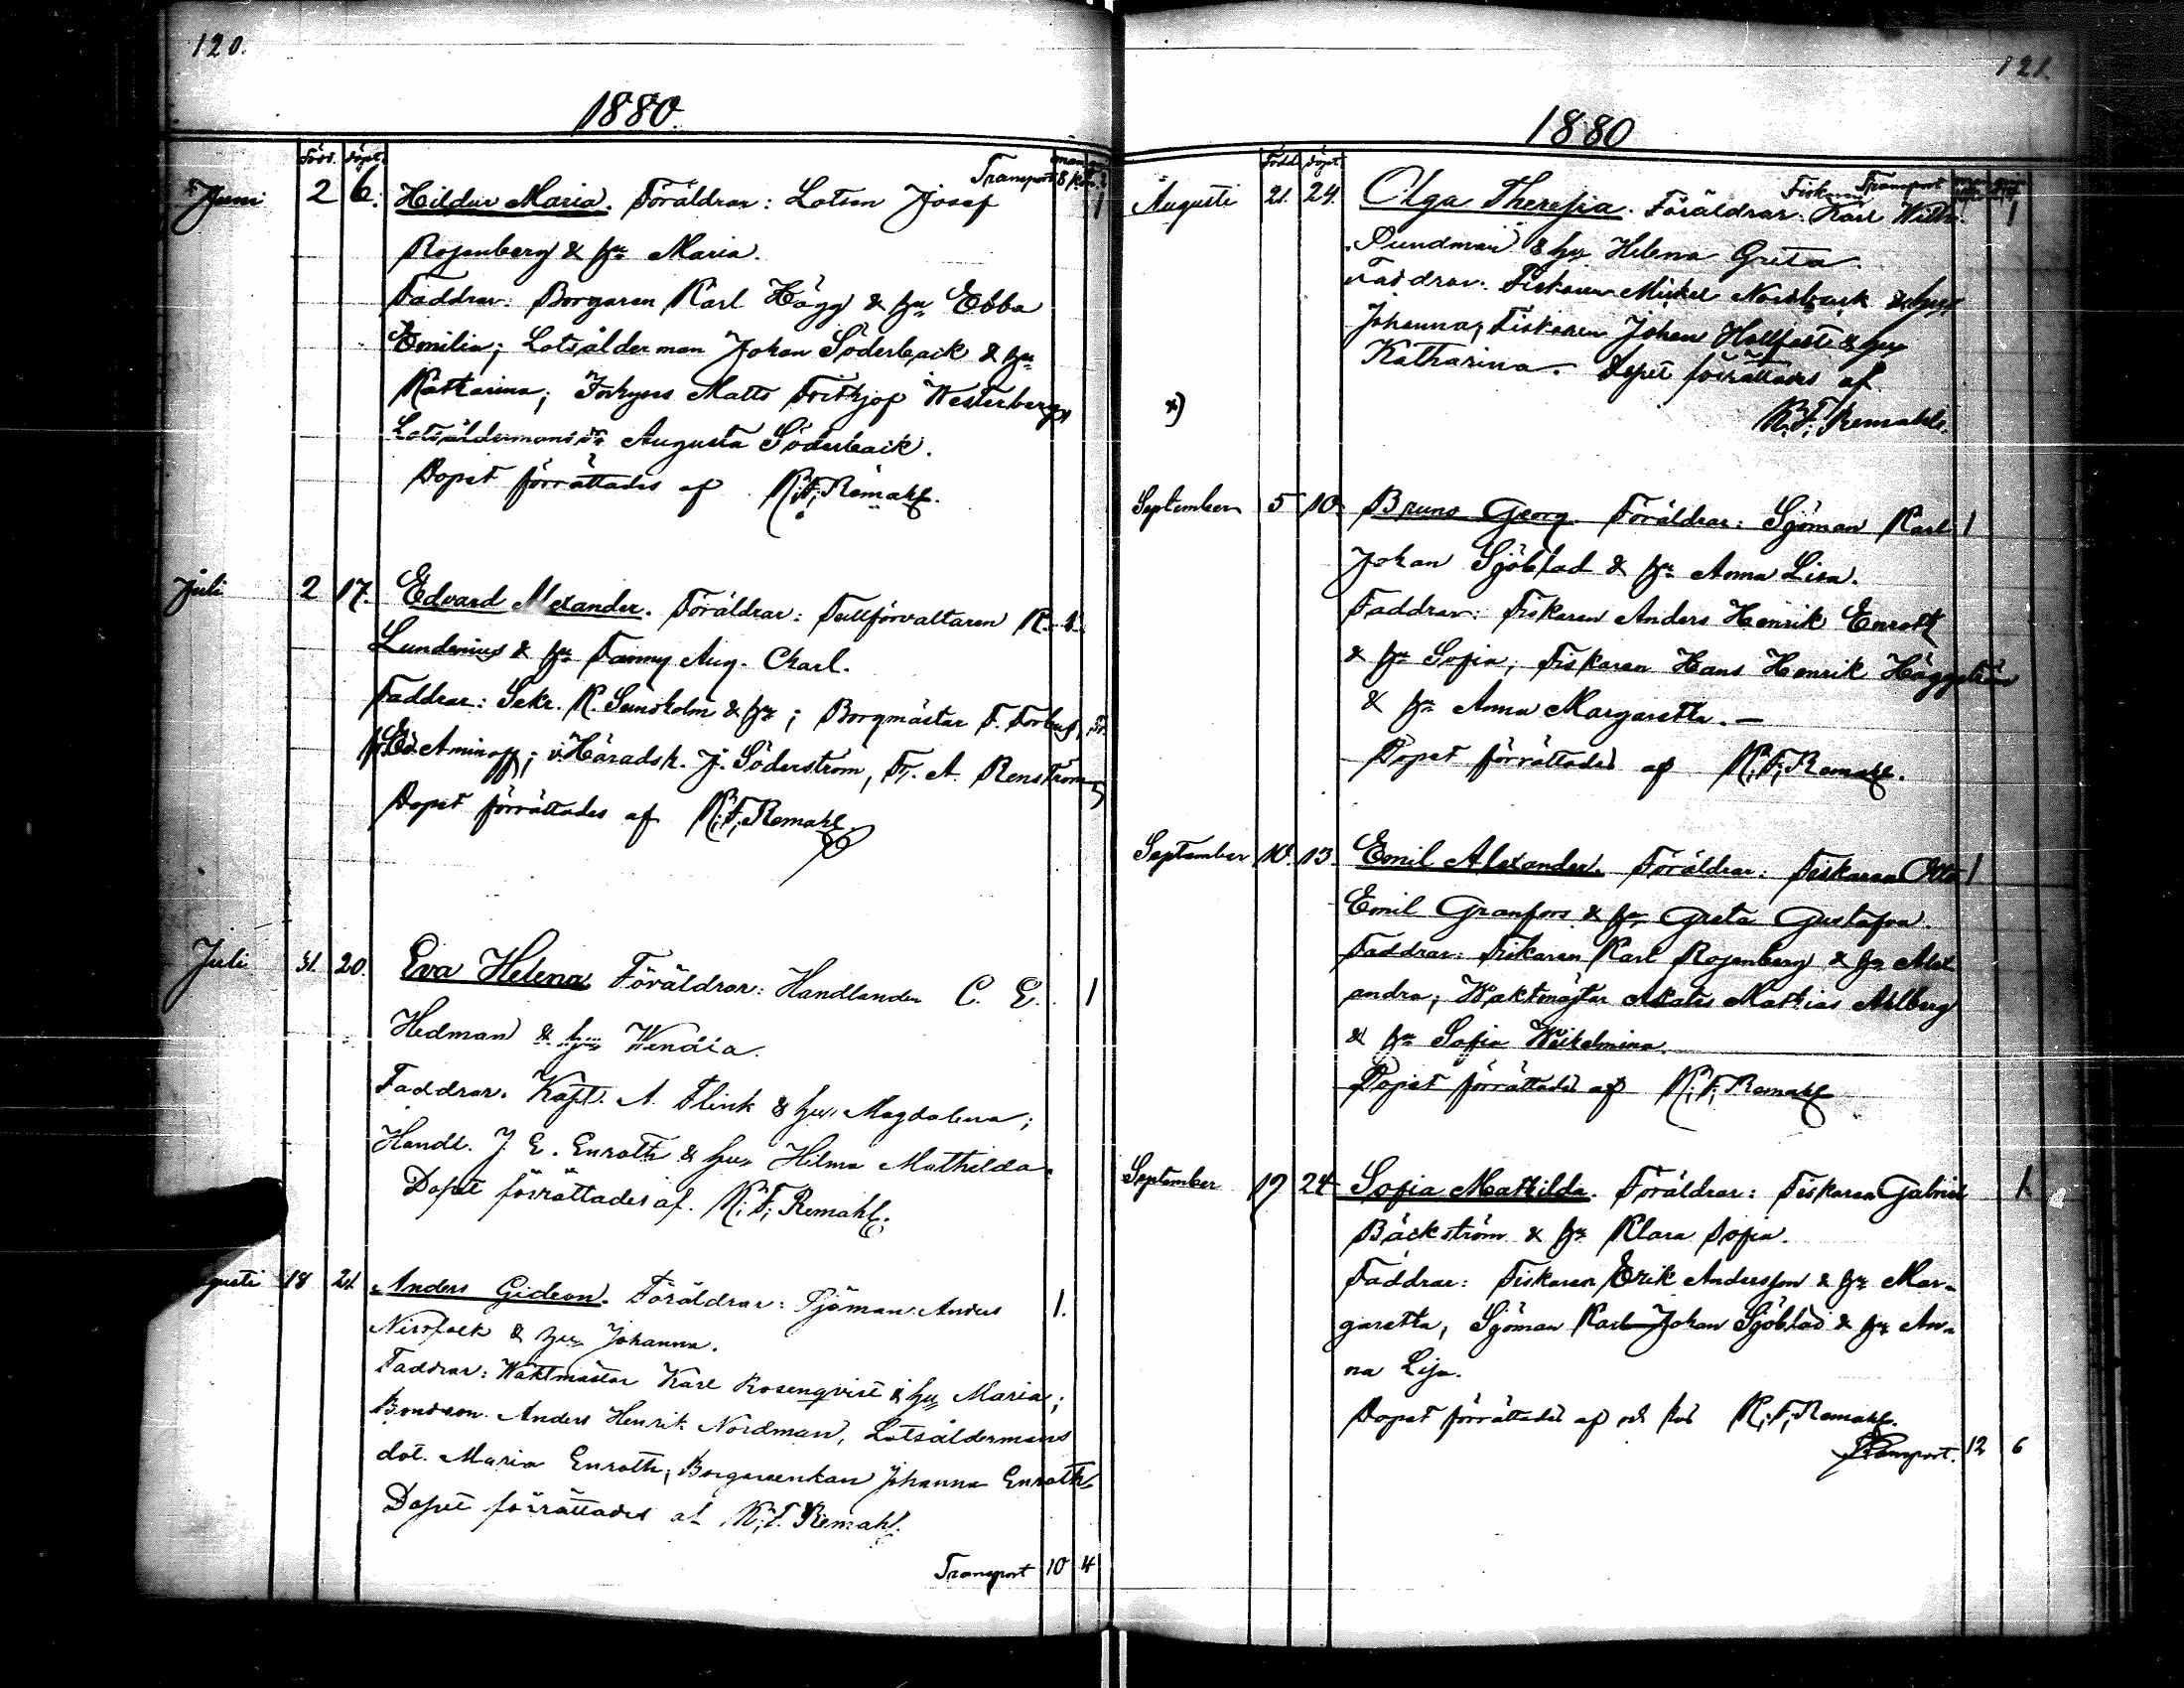 120.
1880.
Född. döpt. Transport man qv.
Juni 2 6. Hildur Maria. Föräldrar: Lotsen Josef 1
Rosenberg & hu Maria.
Faddrar: Borgaren Karl Hägg & hu Ebba
Emilia; Lotsålderman Johan Söderback & hu
Katharina; Matts Frithjof Westerberg,
Lotsåldermans Augusta Söderback.
Dopet förrättades af K. F. Remahl.
Juli 2 17. Edvard Alexander. Föräldrar: Tullförvaltaren K. 1
Lundenius & hu Fanny Aug. Charl.
Faddrar: Sekr. K. Sundholm & hu; Borgmästar F. Forbus,
Aminoff; v. Häradsh. J. Söderström, Fr. A. Renström
Dopet förrättades af K. F. Remahl.
Juli 20. Eva Helena Föräldrar: Handlanden C. E. 1
Hedman & hu Wendla.
Faddrar. Kapt. A. Flink & hu Magdalena;
Handl. J. E. Enroth & hu Hilma Mathilda.
Dopet förrättades af. K. F. Remahl.
gusti 18 21. Anders Gideon. Föräldrar: Sjöman Anders 1.
& hu Johanna.
Faddrar: Waktmästar Karl Rosenqvist & hu Maria;
Bondson Anders Henrik Nordman, Lotsåldermans
dot. Maria Enroth, Borgareenkan Johanna Enroth
Dopet förrättades af K. F. Remahl.
Transport 10 4
121.
1880
Född döpt. Transport
Augusti 21. 24. Olga Theresia. Föräldrar. Fiskaren Karl Wilh. 1
Sundman & hu Helena Greta.
Faddrar. Fiskaren Mickel Nordback & hu
Johanna; Fiskaren Johan Hallfast & hu
Katharina. Dopet förrättades af
*) K. F. Remahl.
September 5 10. Bruno Georg. Föräldrar: Sjöman Karl 1
Johan Sjöblad & hu Anna Lisa.
Faddrar: Fiskaren Anders Henrik Enroth
& hu Sofia; Fiskaren Hans Henrik Häggström
& hu Anna Margaretta. —
Dopet förrättades af K. F. Remahl.
September 10. 13. Emil Alexander. Föräldrar: Fiskaren Otto 1
Emil Granfors & hu Greta Gustafva.
Faddrar: Fiskaren Karl Rosenberg & hu Alex
andra; Waktmästar Mathias Ahlberg
& hu Sofia Wilhelmina.
Dopet förrättades af K. F. Remahl
September 19 24 Sofia Mathilda. Föräldrar: Fiskaren Gabriel 1.
Bäckström & hu Klara Sofia.
Faddrar: Fiskaren Erik Andersson & hu Mar-
garetta, Sjöman Karl Johan Sjöblad & hu An-
na Lisa.
Dopet förrättades af och hos K. F. Remahl.
Transport. 12 6